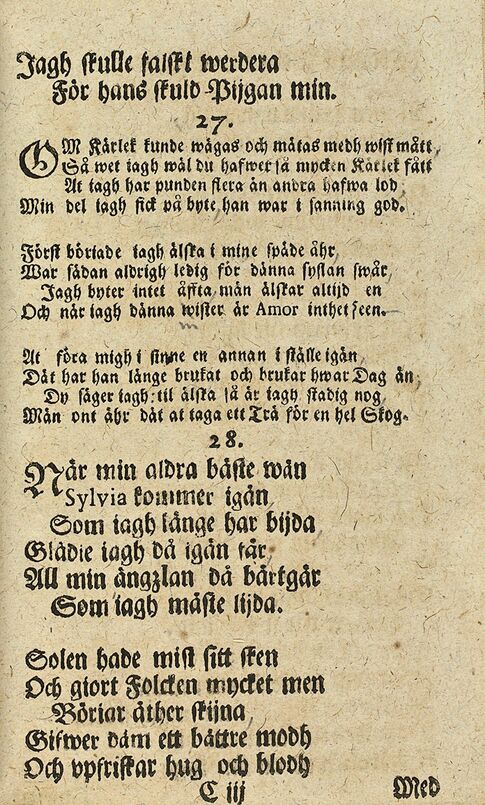 Jagh skulle falskt werdera
För hans skuld Pijgan min.
27.
OM Kärlek kunde wägas och mätas medh wist mått,
Så wet iagh wäl du hafwer så mycken Kärlek fått
At iagh har punden flera än andra hafwa lod,
Min del iagh fick på byte han war i sanning god.
Först böriade iagh älska i mine späde åhr,
War sådan aldrigh ledig för dänna syslan swår,
Jagh byter intet åffta män älskar altijd en
Och när iagh dänna wister är Amor inthet seen.
At föra migh i sinne en annan i ställe igän,
Dät har han länge brukat och brukar hwar Dag än,
Dy säger iagh: til älska så är iagh stadig nog,
Män ont åhr dät at taga ett Trä för en hel Skog.
28.
När min aldra bäste wän
Sylvia kommer igän
Som iagh länge har bijda
Glädie iagh då igän får,
All min ängzlan då bårtgår
Som iagh mäste lijda.
Solen hade mist sitt sken
Och giort Folcken mycket men
Böriar åther skijna,
Gifwer däm ett bättre modh
Och vpfriskar hug och blodh
C iij
Med